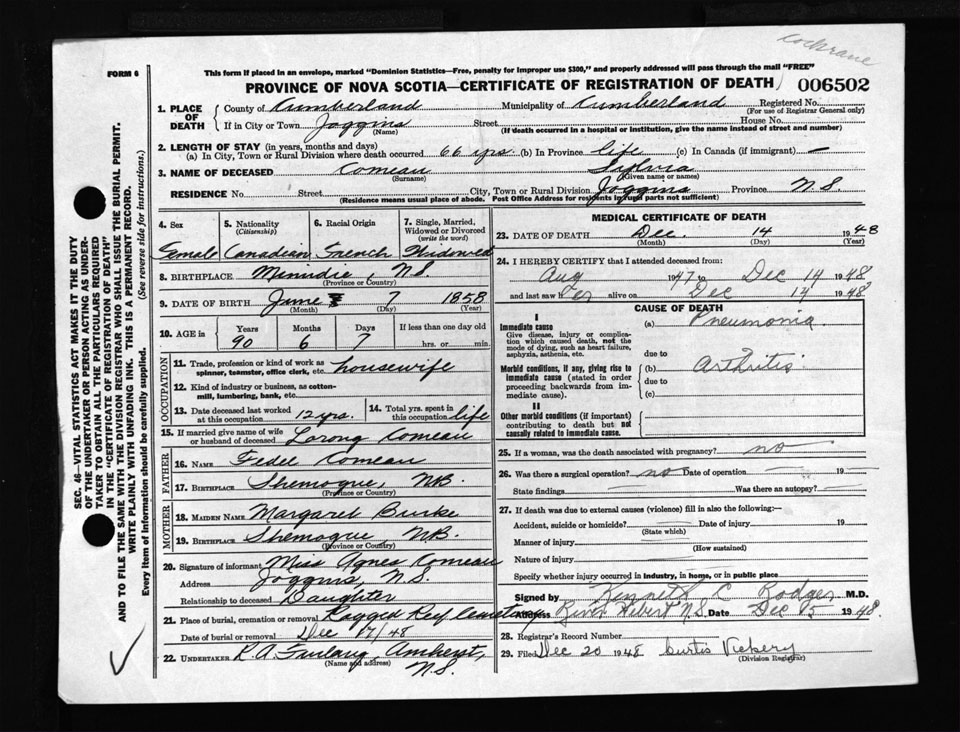 cochrane
FORM 6
This form if placed in an envelope, marked "Dominion Statistics—Free, penalty for improper use $300," and properly addressed will pass through the mail "FREE"
PROVINCE OF NOVA SCOTIA—CERTIFICATE OF REGISTRATION OF DEATH 006502
1. PLACE OF DEATH County of Cumberland Municipality of Cumberland Registered No.
(For use of Registrar General only)
If in City or Town Joggins Street House No.
(Name) (If death occurred in a hospital or institution, give the name instead of street and number)
2. LENGTH OF STAY (in years, months and days)
(a) In City, Town or Rural Division where death occurred 66 yrs. (b) In Province life (c) In Canada (if immigrant) —
3. NAME OF DECEASED Comeau Sylvia
(Surname) (Given name or names)
RESIDENCE No. Street City, Town or Rural Division Joggins Province N.S.
(Residence means usual place of abode. Post Office Address for residents in rural parts not sufficient)
4. Sex 5. Nationality 6. Racial Origin 7. Single, Married, Widowed or Divorced
(Citizenship) (write the word)
Female Canadian French Widowed
8. BIRTHPLACE Minudie, NS
(Province or Country)
9. DATE OF BIRTH June 7 1858
(Month) (Day) (Year)
10. AGE in Years Months Days If less than one day old
90 6 7 hrs. or min.
OCCUPATION
11. Trade, profession or kind of work as spinner, teamster, office clerk, etc. housewife
12. Kind of industry or business, as cotton-mill, lumbering, bank, etc.
13. Date deceased last worked at this occupation 12 yrs. 14. Total yrs. spent in this occupation life
15. If married give name of wife or husband of deceased Comeau
FATHER
16. NAME Fedel Comeau
17. BIRTHPLACE Shemogue, NB.
(Province or Country)
MOTHER
18. MAIDEN NAME Margaret Burke
19. BIRTHPLACE Shemogue, NB.
(Province or Country)
20. Signature of informant Miss Agnes Comeau
Address Joggins, N.S.
Relationship to deceased Daughter
21. Place of burial, cremation or removal Ragged Reef Cemetery
Date of burial or removal Dec 17/48
22. UNDERTAKER R A Amherst,
(Name and address) N.S.
MEDICAL CERTIFICATE OF DEATH
23. DATE OF DEATH Dec. 14 1948
(Month) (Day) (Year)
24. I HEREBY CERTIFY that I attended deceased from:
Aug 1947 to Dec 14 1948
and last saw her alive on Dec 14 1948
CAUSE OF DEATH
I
Immediate cause (a) Pneumonia.
Give disease, injury or complication which caused death, not the mode of dying, such as heart failure, asphyxia, asthenia, etc.
due to
Morbid conditions, if any, giving rise to immediate cause (stated in order proceeding backwards from immediate cause). (b) Arthritis.
due to
(c)
II
Other morbid conditions (if important) contributing to death but not causally related to immediate cause.
25. If a woman, was the death associated with pregnancy? no
26. Was there a surgical operation? no Date of operation — 19
State findings — Was there an autopsy? —
27. If death was due to external causes (violence) fill in also the following:—
Accident, suicide or homicide? Date of injury 19
(State which)
Manner of injury
(How sustained)
Nature of injury
Specify whether injury occurred in industry, in home, or in public place
Signed by Kenneth C Rodger M.D.
Address River Hebert N.S. Date Dec 15 1948
28. Registrar's Record Number
29. Filed Dec 20 1948 Curtis Vickery
(Division Registrar)
SEC. 46—VITAL STATISTICS ACT MAKES IT THE DUTY
OF THE UNDERTAKER OR PERSON ACTING AS UNDERTAKER TO OBTAIN ALL THE PARTICULARS REQUIRED
IN THE "CERTIFICATE OF REGISTRATION OF DEATH"
AND TO FILE THE SAME WITH THE DIVISION REGISTRAR WHO SHALL ISSUE THE BURIAL PERMIT.
WRITE PLAINLY WITH UNFADING INK. THIS IS A PERMANENT RECORD.
Every item of information should be carefully supplied. (See reverse side for instructions.)